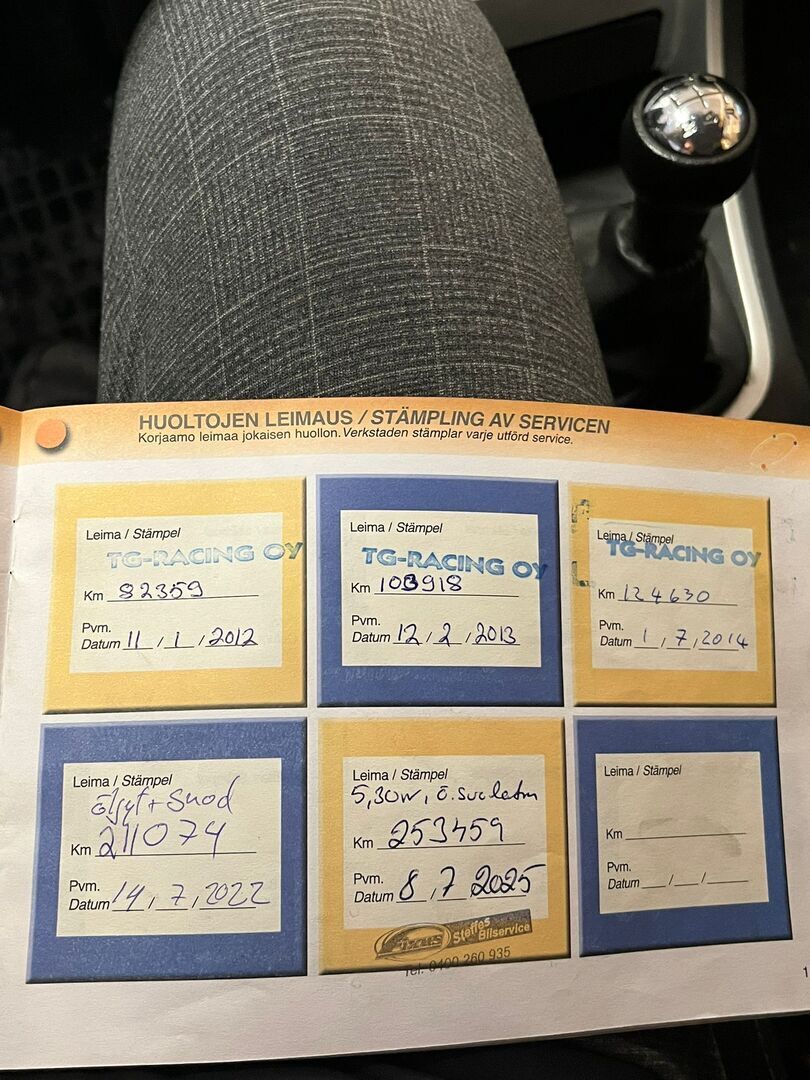 HUOLTOJEN LEIMAUS / STÄMPLING AV SERVICEN
Korjaamo leimaa jokaisen huollon. Verkstaden stämplar varje utförd service.
Leima / Stämpel
TG-RACING OY
Km 82359
Pvm.
Datum 11 / 1 / 2012
Leima / Stämpel
TG-RACING OY
Km 103918
Pvm.
Datum 12 / 2 / 2013
Leima / Stämpel
TG-RACING OY
Km 124630
Pvm.
Datum 1 / 7 / 2014
Leima / Stämpel
öljyt + Suod
Km 211074
Pvm.
Datum 14 / 7 / 2022
Leima / Stämpel
5,30W, ö.
Km 253459
Pvm.
Datum 8 / 7 2025
Fixus Steffes
Bilservice
Tel. 0400 260 935
Leima / Stämpel
Km
Pvm.
Datum __/__/____
1